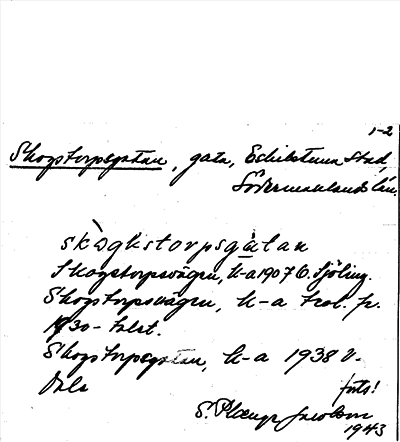 1-2
Skogstorpsgatan, gata, Eskilstuna stad,
Södermanlands län.
skògkstorpsgàtan
Skogstorpsvägen, k-a 1907 C. Sjöling.
Skogstorpsvägen, k-a trol. fr.
1930-talet.
Skogstorpsgatan, k-a 1938 V.
forts!
S. Plænge Jacobson
1943